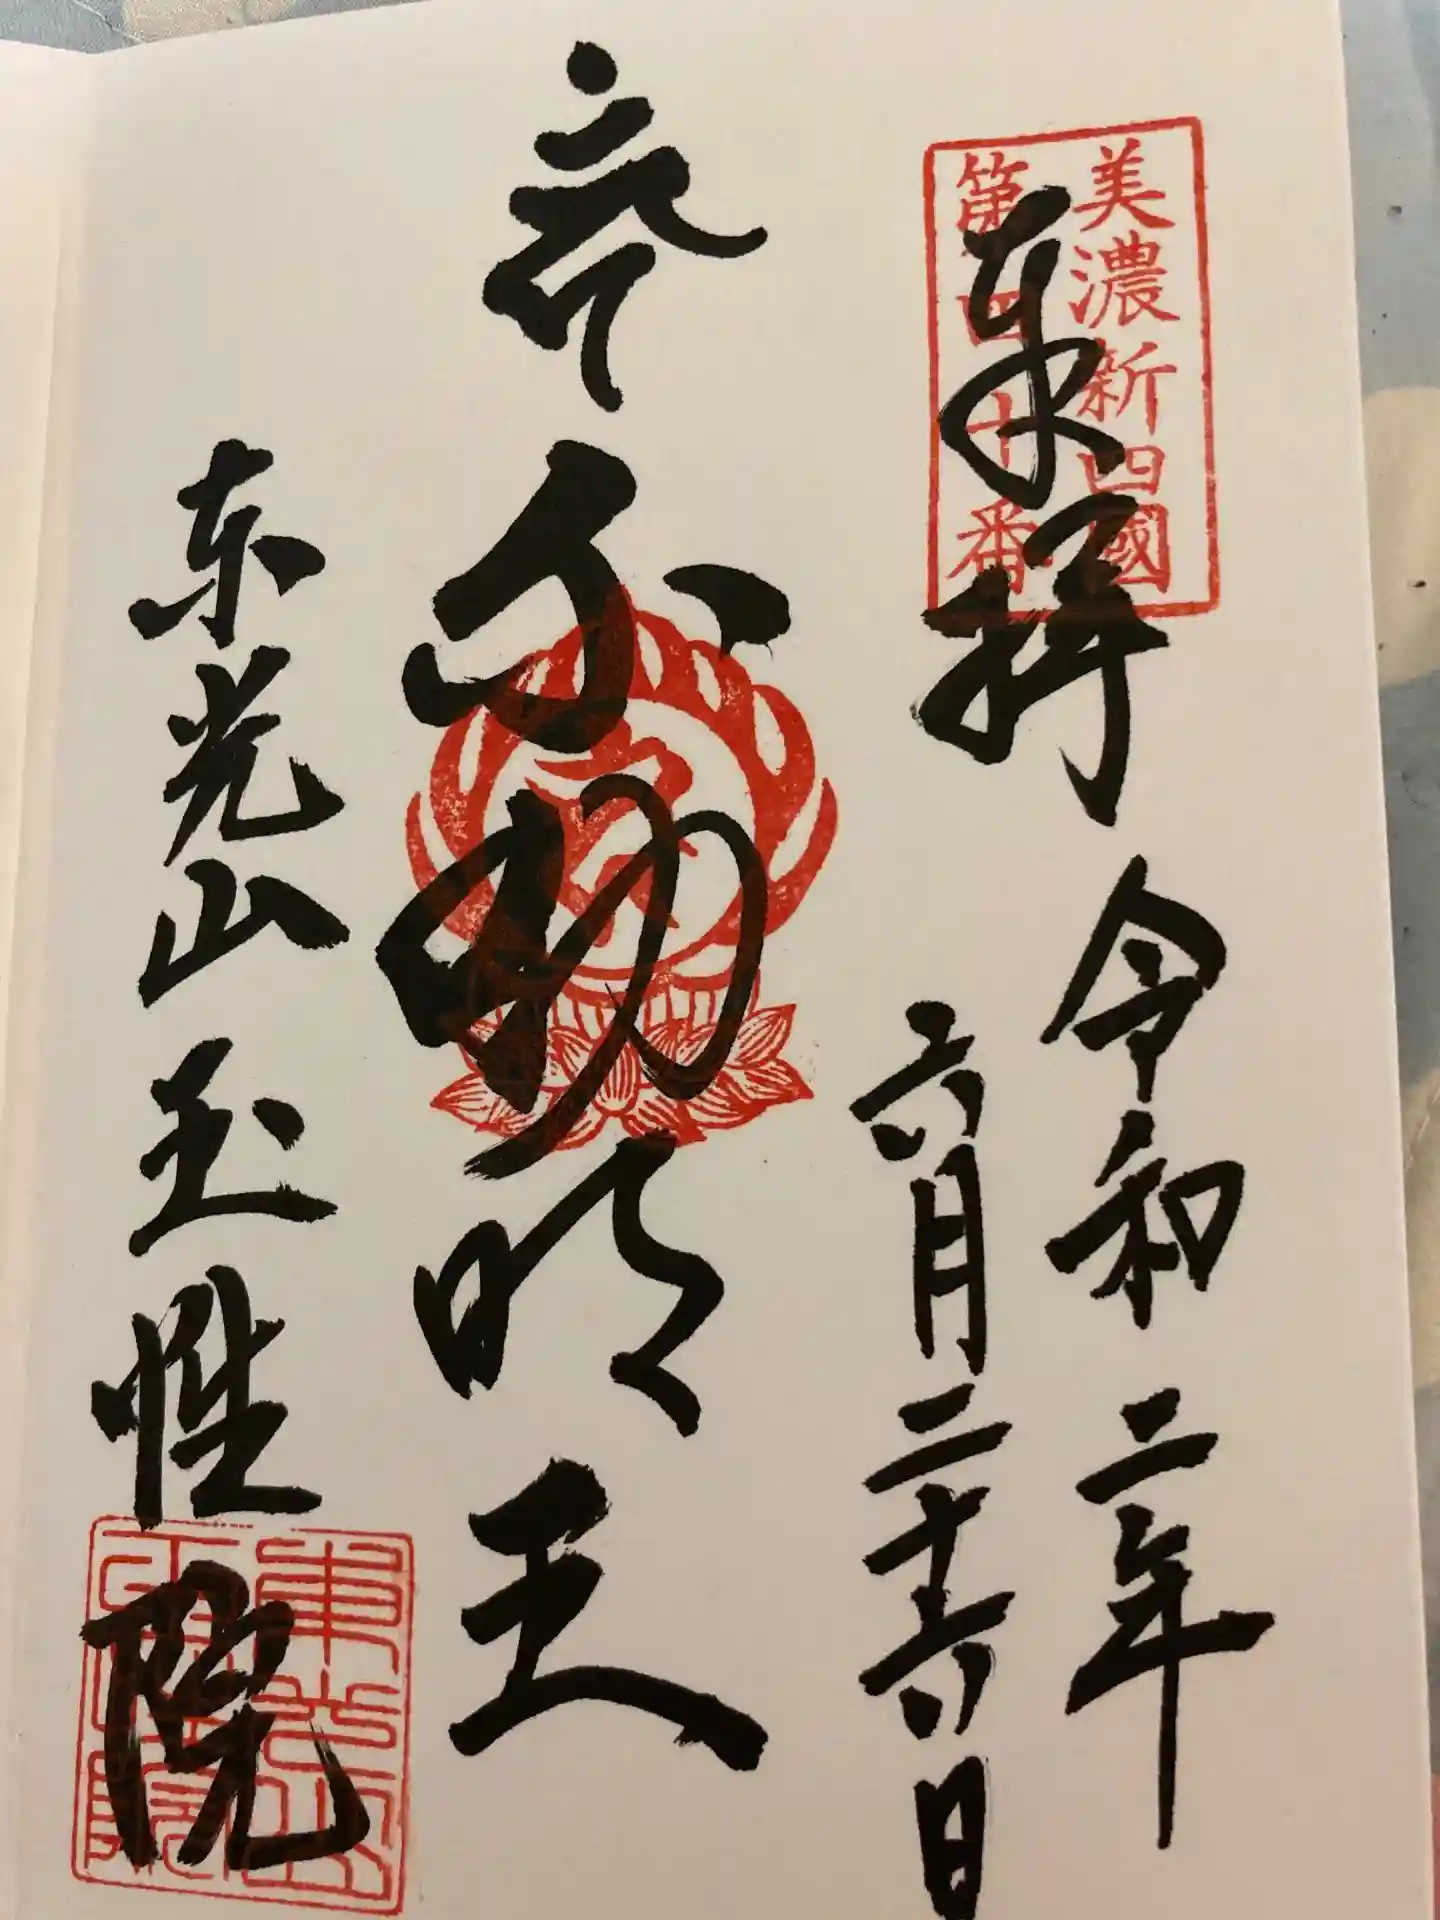 美濃新四國
第四十番
奉拝
令和二年
六月二十六日
不動明王
東光山玉性院
東光山
玉性院